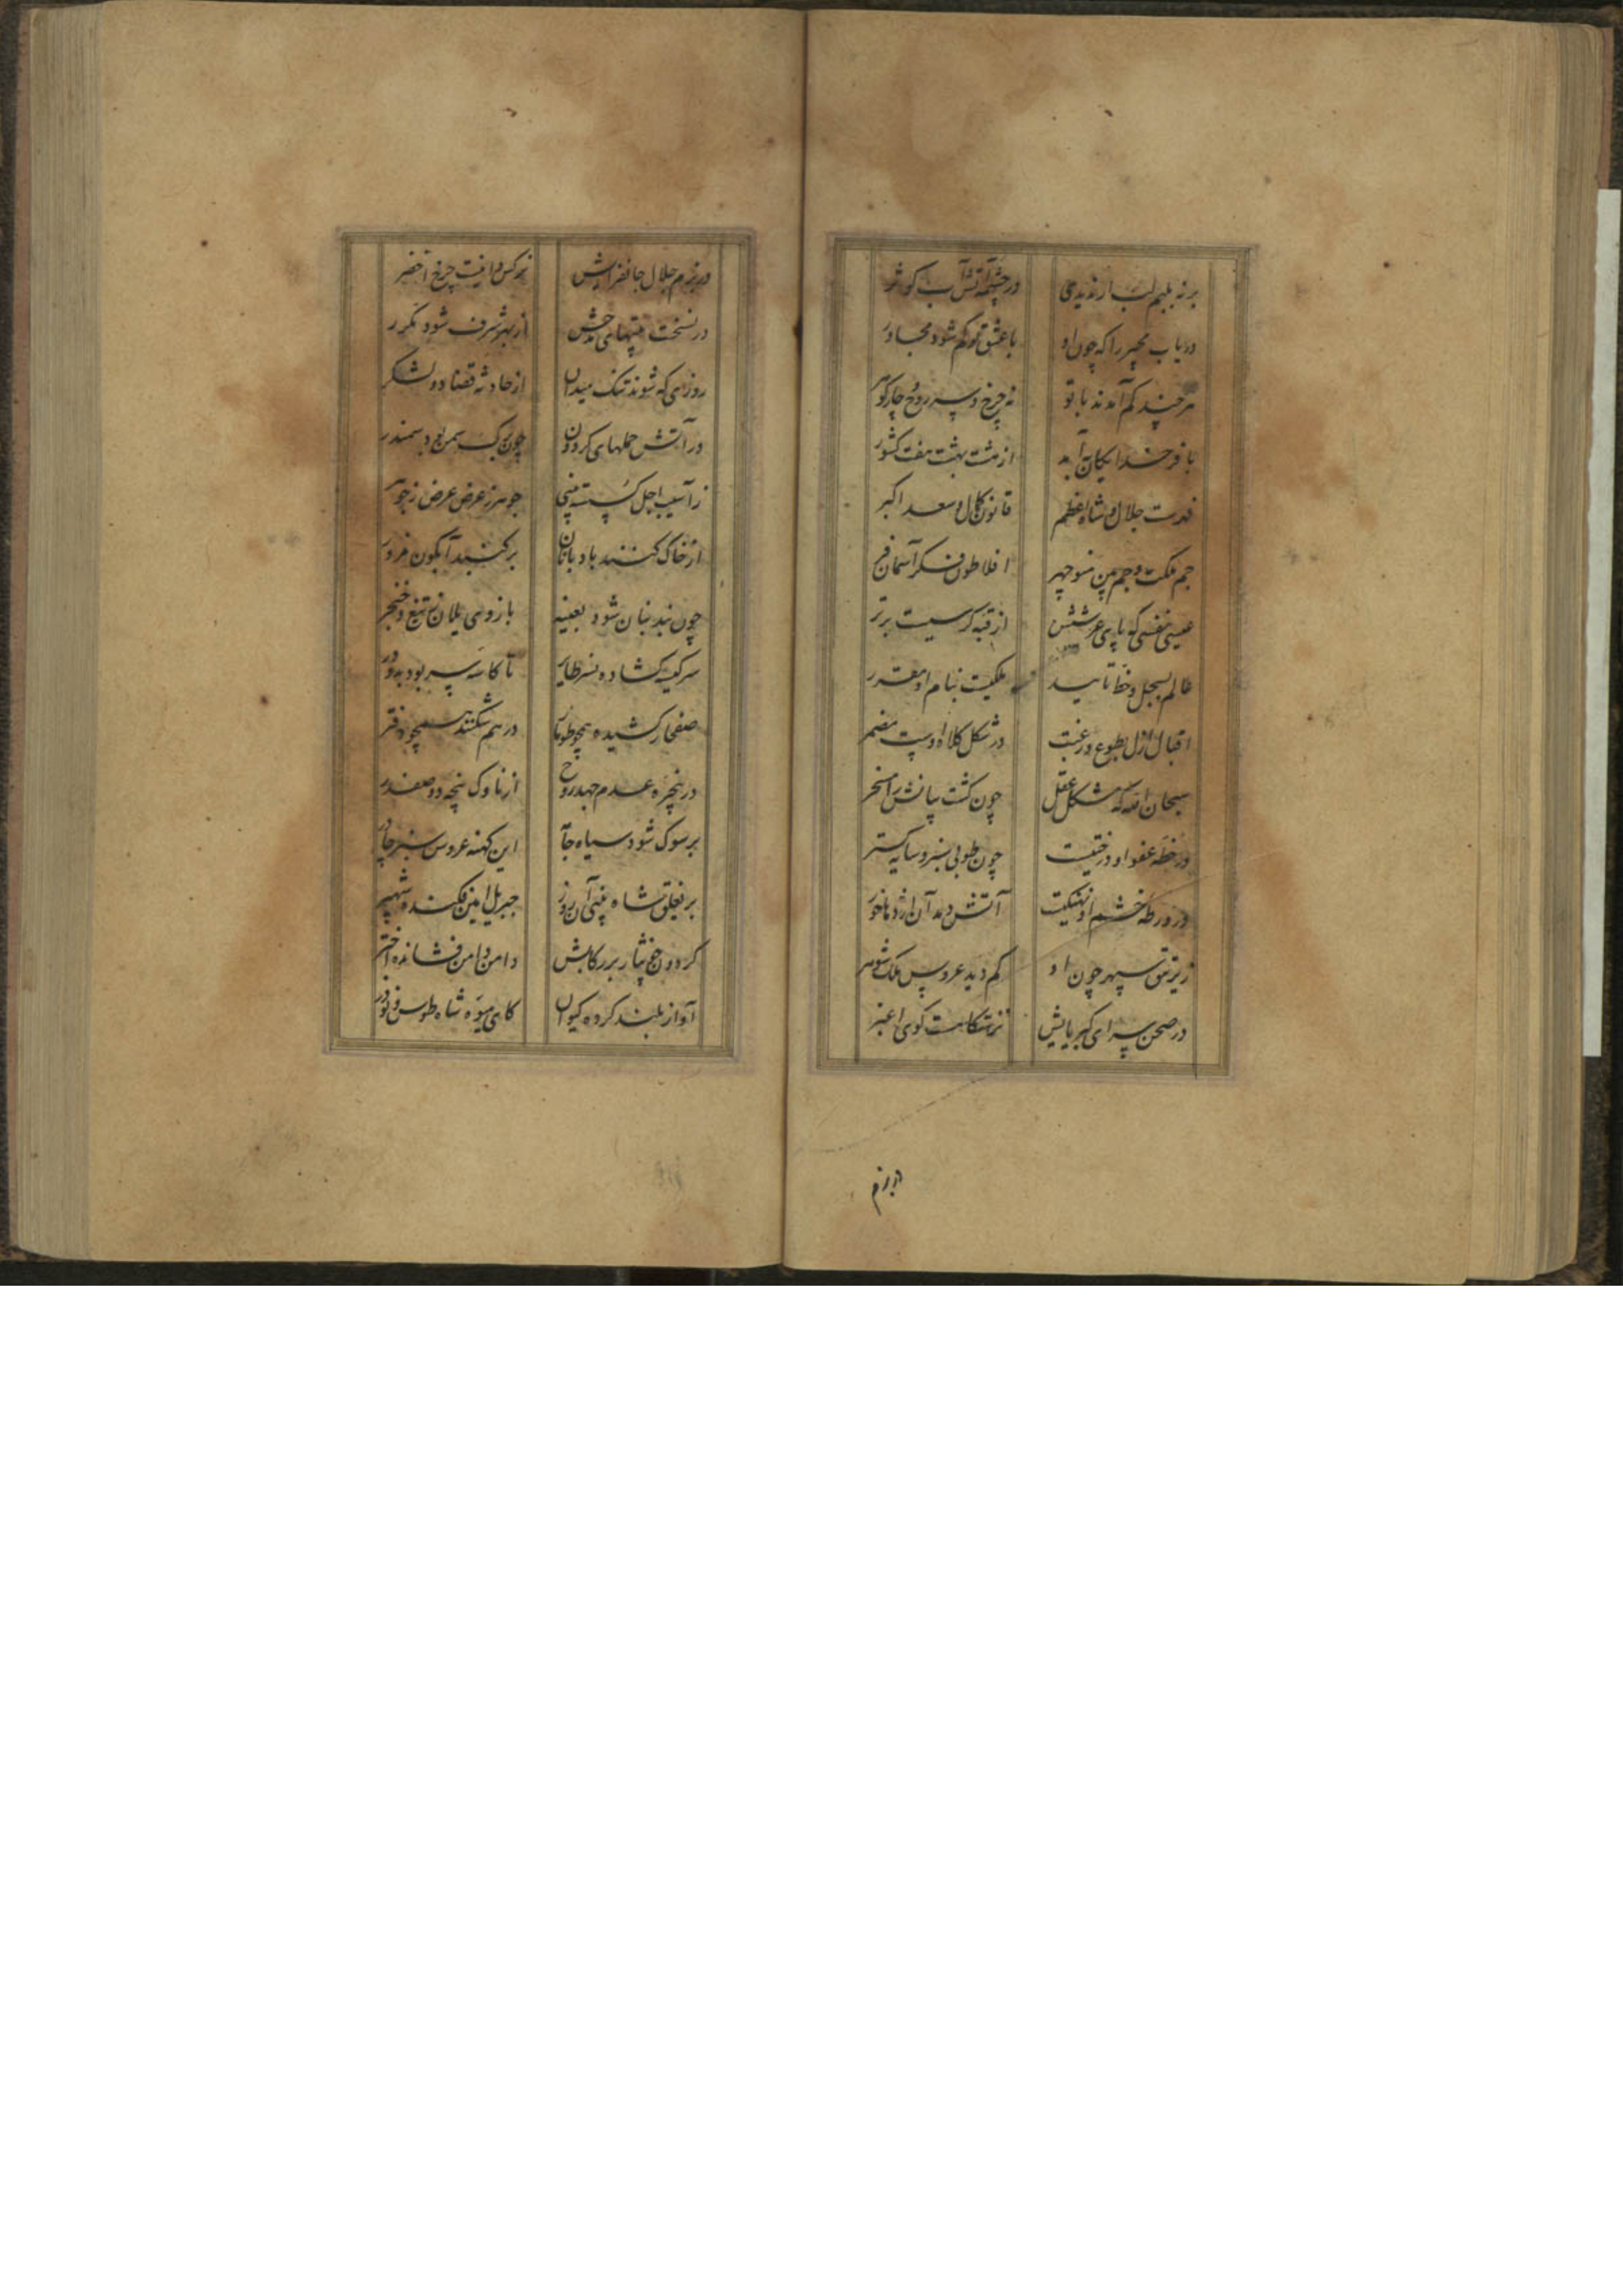 برنه بلبم لب ار ندیدی در چشمه آتش آب کوثر
دریاب مجیر را که چون او با عشق تو کم شود مجاور
هر چند کم آمدند با تو نه چرخ و سه روح و چار گوهر
با فر خدایگان آمد از هشت بهشت هفت کشور
قدرت جلال و شاه اعظم قانون کمال و سعد اکبر
جم ملکت و جم منوچهر افلاطون فکر آسمان فر
عیسی نفسی که پای عرشش از قبه کرسیست برتر
عالم بسجل و خط تایید ملکیست بنام او مقرر
اقبال ازل بطوع و رغبت در شکل کلاه اوست مضمر
سبحان الله که مشکل عقل چون گشت بیانش را مسخر
در خطه عفو او درختیست چون طوبی سبز و سایه گستر
در ورطه خشم او نهنگیست آتش دم آن اژدها خور
زیر تتق سپهر چون او کم دید عروس ملک شوهر
در صحن سرای کبریایش نه گوی اغبر
در بزم
در بزم جلال جانفزایش نرگس دانیست چرخ اخضر
در نسخت بیتهای مدحش از بهر شرف شود مکرر
روزی که شوند تنگ میدان از حادثه قضا دو لشکر
در آتش حملهای گردون چون برگ سمن بود سمندر
ز آسیب اجل گسسته بینی جوهر ز عرض عرض ز جوهر
از خاک کنند بادبانان بر گنبد آبگون مزور
چون بند بنان شود بعینه بازوی یلان ز تیغ و خنجر
سر کیسه گشاده نسر طایر تا کاسه سر بود بدو در
صفها کشیده همچو طومار در هم شکنند همچو دفتر
در پنجره عدم جهد روح از ناوک پنجه دو صفدر
بر سوک شود سیاه جامه این کهنه عروس سبز چادر
بر فیلق شاه بینی آن روز جبریل امین فکنده شهپر
گردون نثار بر رکابش دامن دامن فشانده اختر
آواز بلند کرده کیوان کای میوه شاه طوس و نوذر